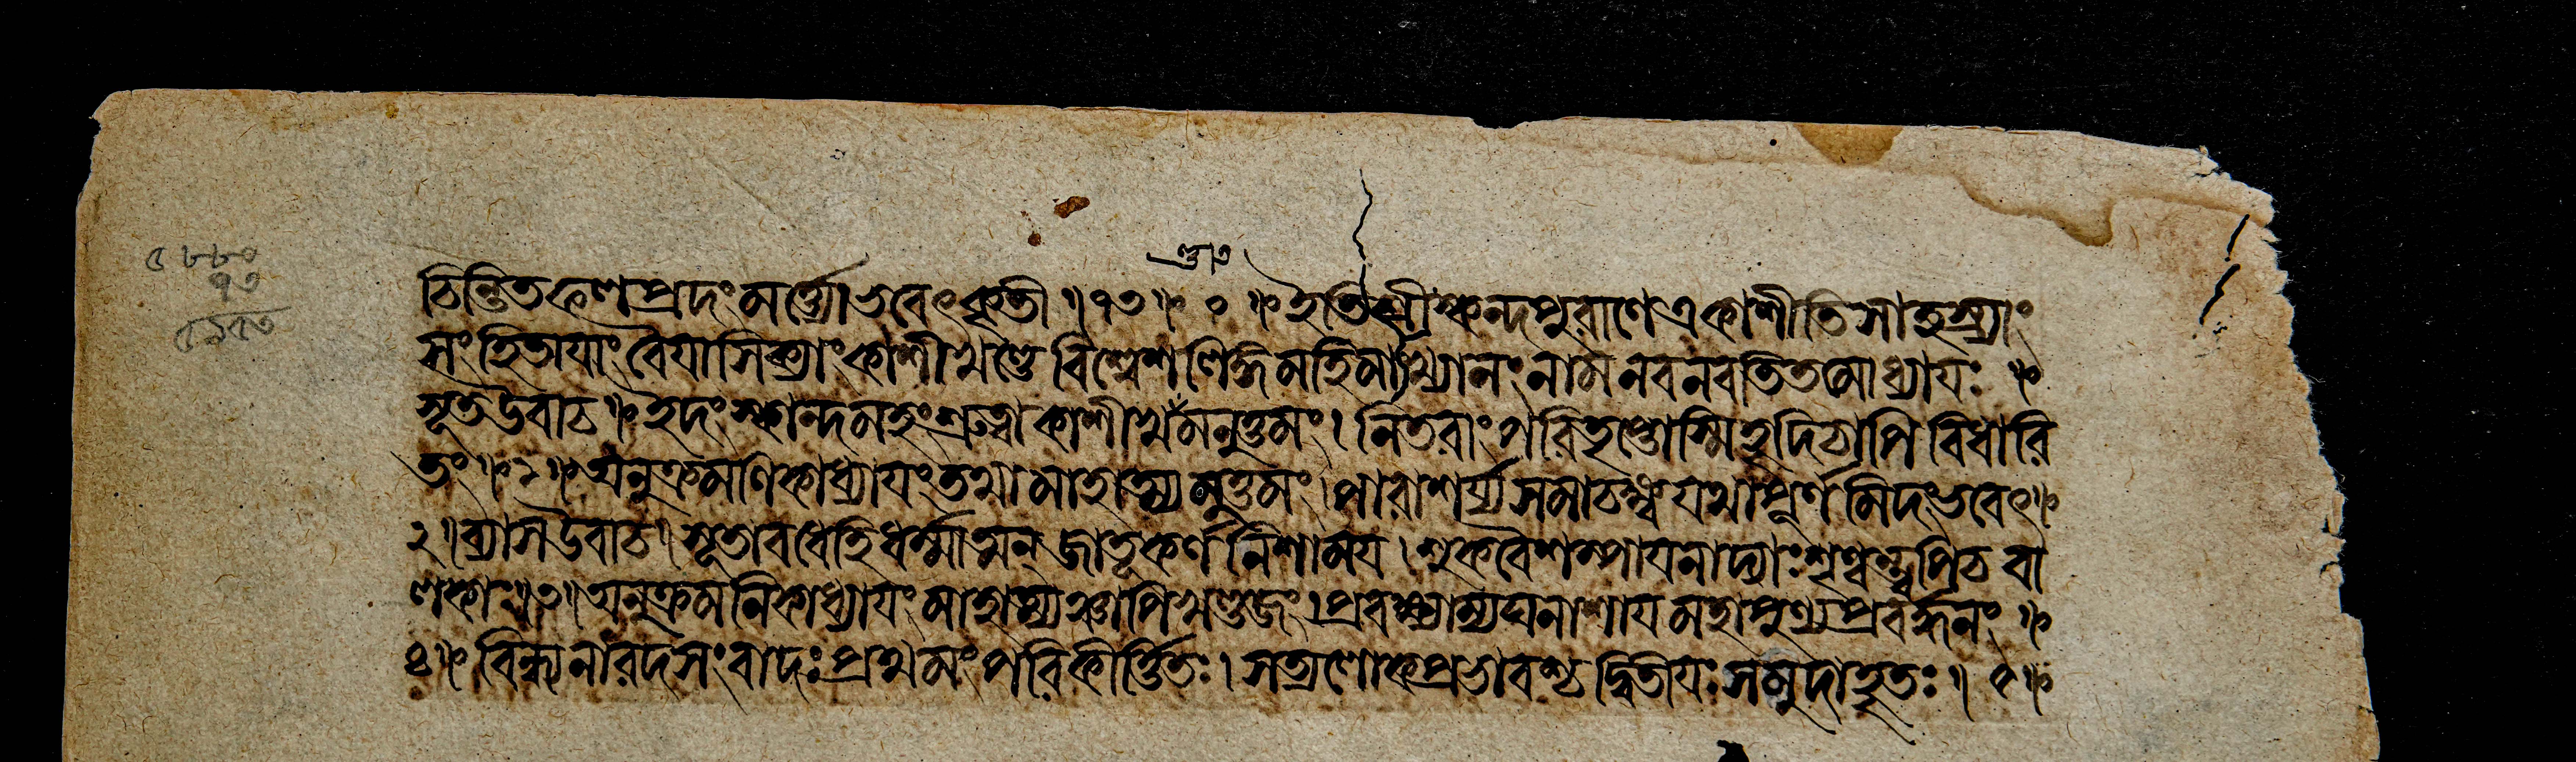 ৫৮৮০
৭৩
৫৯৫৩
চিন্তিতফলপ্রদং মর্ত্ত্যো ভবেৎ কৃতী ॥ ৭৩ ॥ ০ ॥ ইতি শ্রীস্কন্দপুরাণে একাশীতিসাহস্র্যাং
সংহিতাযাং বৈযাসিক্যাং কাশীখণ্ডে বিশ্বেশলিঙ্গমহিমাখ্যানং নাম নবনবতিতমোধ্যাযঃ ॥
সূত উবাচ ॥ ইদং স্কান্দমহং শ্রুত্বা কাশীখণ্ডমনুত্তমং । নিতরাং পরিতৃপ্তোস্মি হৃদি চাপি বিধারি
তং ॥ ১ ॥ অনুক্রমণিকাধ্যাযং তথা মাহাত্ম্যমুত্তমং । পারাশর্য্য সমাচক্ষ্ব যথা পূর্ণমিদং ভবেৎ ॥
২ ॥ ব্যাস উবাচ ॥ সূতাবধেহি ধর্ম্মাত্মন্ জাতূকর্ণ নিশাময । শুকবৈশম্পাযনাদ্যাঃ শৃণ্বন্ত্বপি চ বা
লকাঃ ॥ ৩ ॥ অনুক্রমনিকাধ্যাযং মাহাত্ম্যঞ্চাপি খণ্ডজং । প্রবক্ষ্যাম্যঘনাশায মহাপুণ্যপ্রবর্দ্ধনং ॥
৪ ॥ বিন্ধ্যনারদসংবাদঃ প্রথমং পরিকীর্ত্তিতঃ । সত্যলোকপ্রভাবশ্চ দ্বিতীযঃ সমুদাহৃতঃ ॥ ৫ ॥